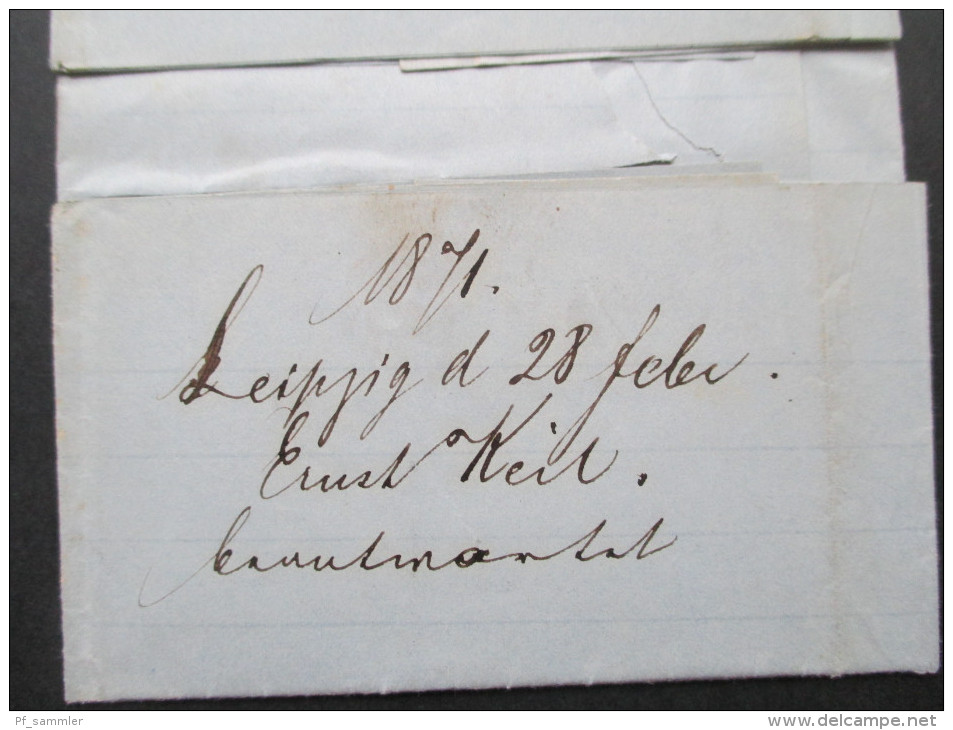 1871.
Leipzig d 28 febr.
Ernst Keil.
beantwortet
Pf_sammler
www.delcampe.net